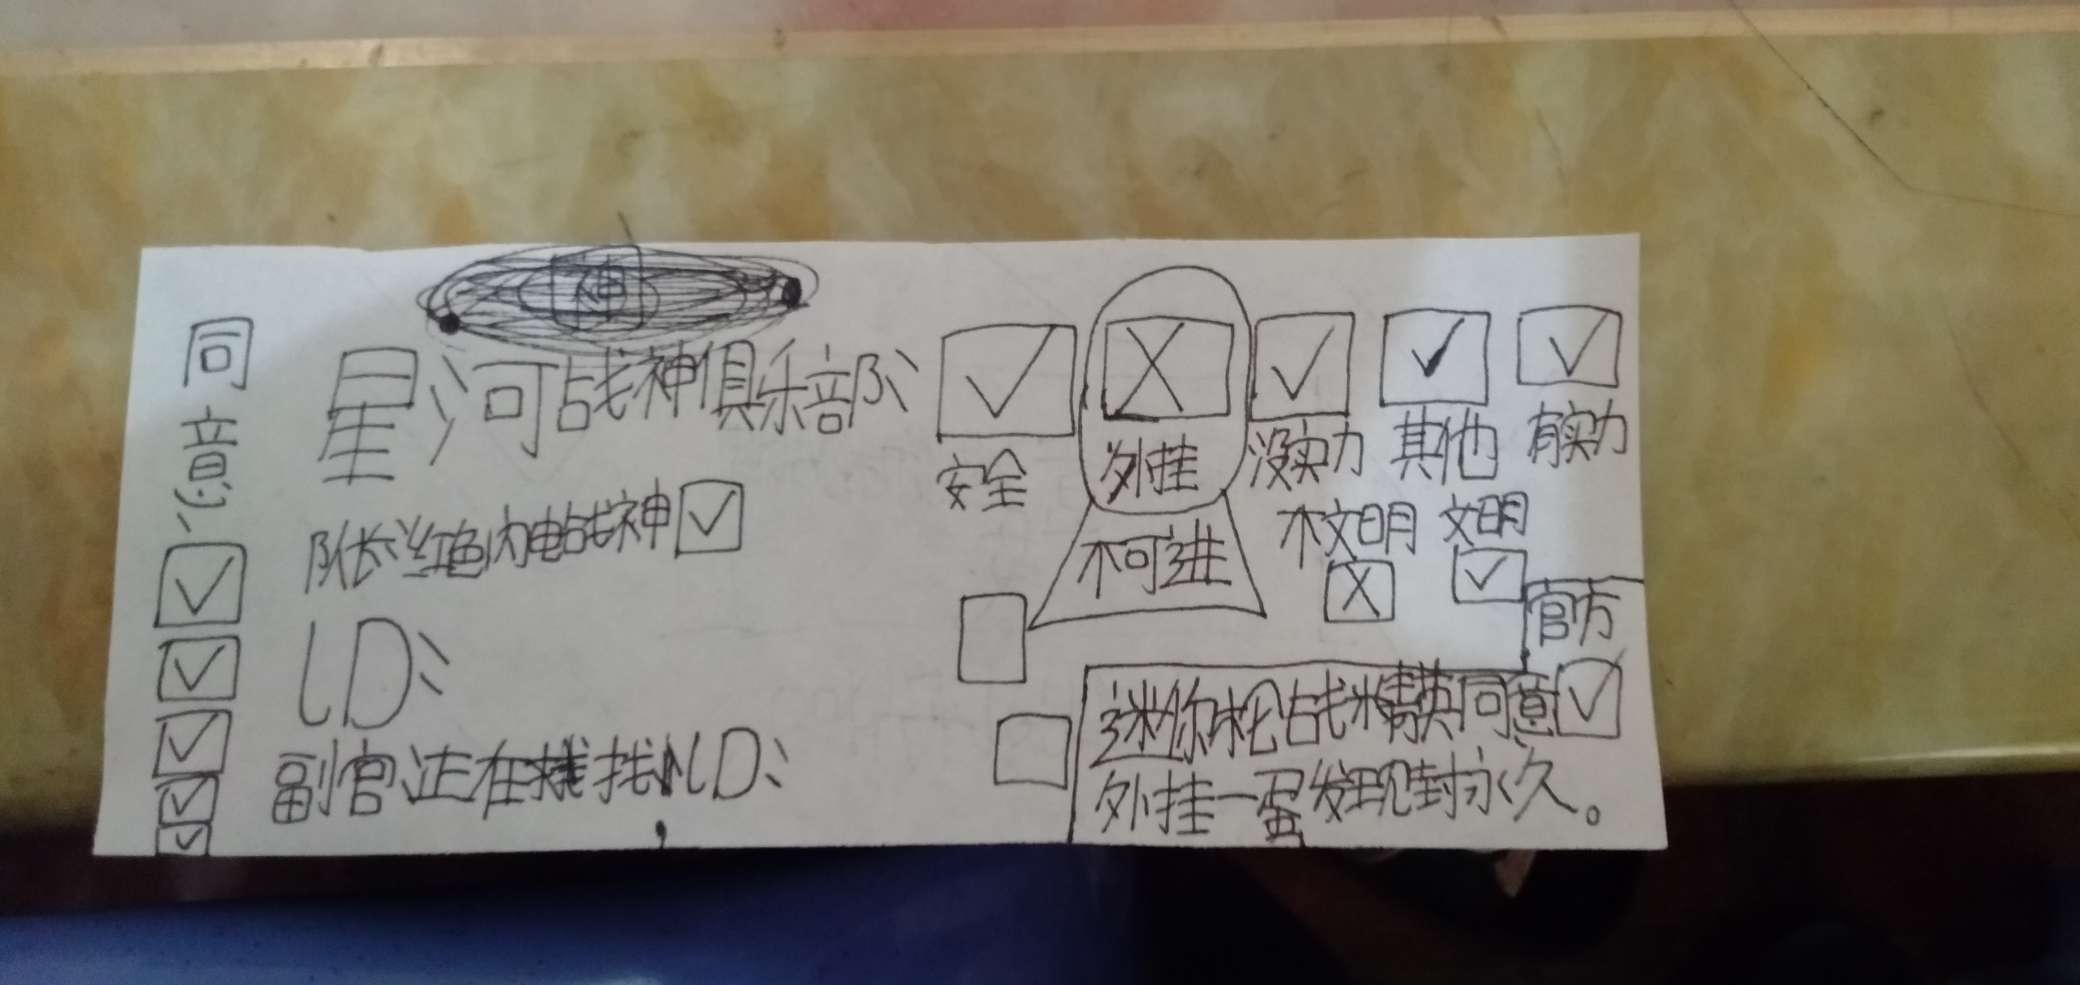 神
同意
星河战神俱乐部：
队长：红色闪电战神
ID：
副官：正在找ID：
安全
外挂
没实力
其他
有实力
不可进
不文明
文明
官方
迷你枪战精英同意
外挂一蛋发现封永久。